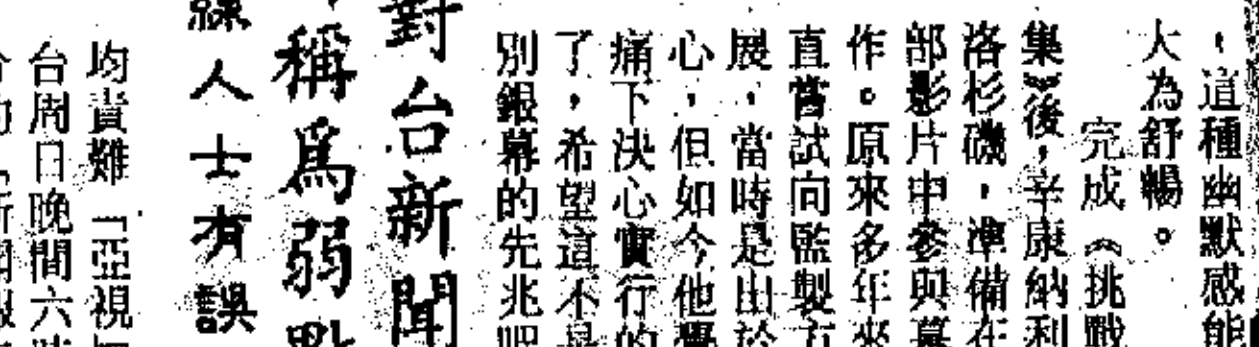 ，這種幽默感能
大為舒暢。
完成《挑戰
集》後，辛康納利
洛杉磯，準備在
部影片中參與幕
作。原來多年來
直嘗試向監製方
展，當時是由於
心，但如今他覺
痛下決心實行的
了，希望這不是
別銀幕的先兆吧
對台新聞
稱爲弱點
線人士有誤
均責難「亞視
台周日晚間六時